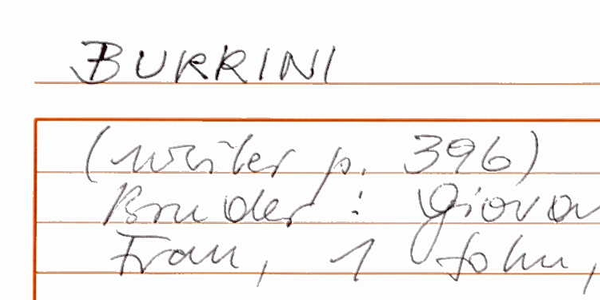 BURRINI
(weiter p. 396)
Bruder: Giovan
Frau, 1 Sohn,